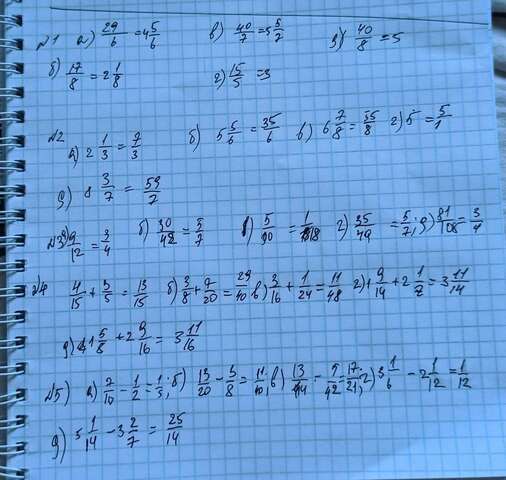 №1 а) 29/6 = 4 5/6 в) 40/7 = 5 5/7 д) 40/8 = 5
б) 17/8 = 2 1/8 г) 15/5 = 3
№2
а) 2 1/3 = 7/3 б) 5 5/6 = 35/6 в) 6 7/8 = 55/8 г) 5 = 5/1
д) 8 3/7 = 59/7
№3 а) 9/12 = 3/4 б) 30/42 = 5/7 в) 5/90 = 1/18 г) 35/49 = 5/7; д) 81/108 = 3/4
№4 4/15 + 3/5 = 13/15 б) 3/8 + 7/20 = 29/40 в) 3/16 + 1/24 = 11/48 г) 1 9/14 + 2 1/7 = 3 11/14
д) 1 5/8 + 2 9/16 = 3 11/16
№5) а) 7/10 - 1/2 = 1/5; б) 13/20 - 3/8 = 11/10; в) 13/14 - 5/42 = 17/21; г) 3 1/6 - 2 1/12 = 1/12
д) 5 1/14 - 3 2/7 = 25/14